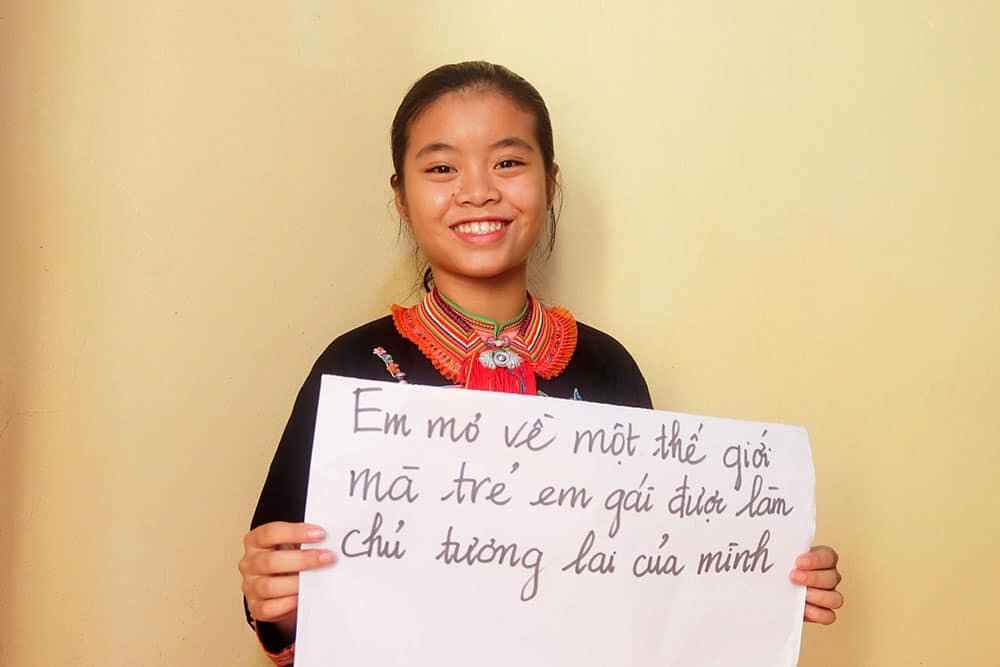 Em mơ về một thế giới
mà trẻ em gái được làm
chủ tương lai của mình